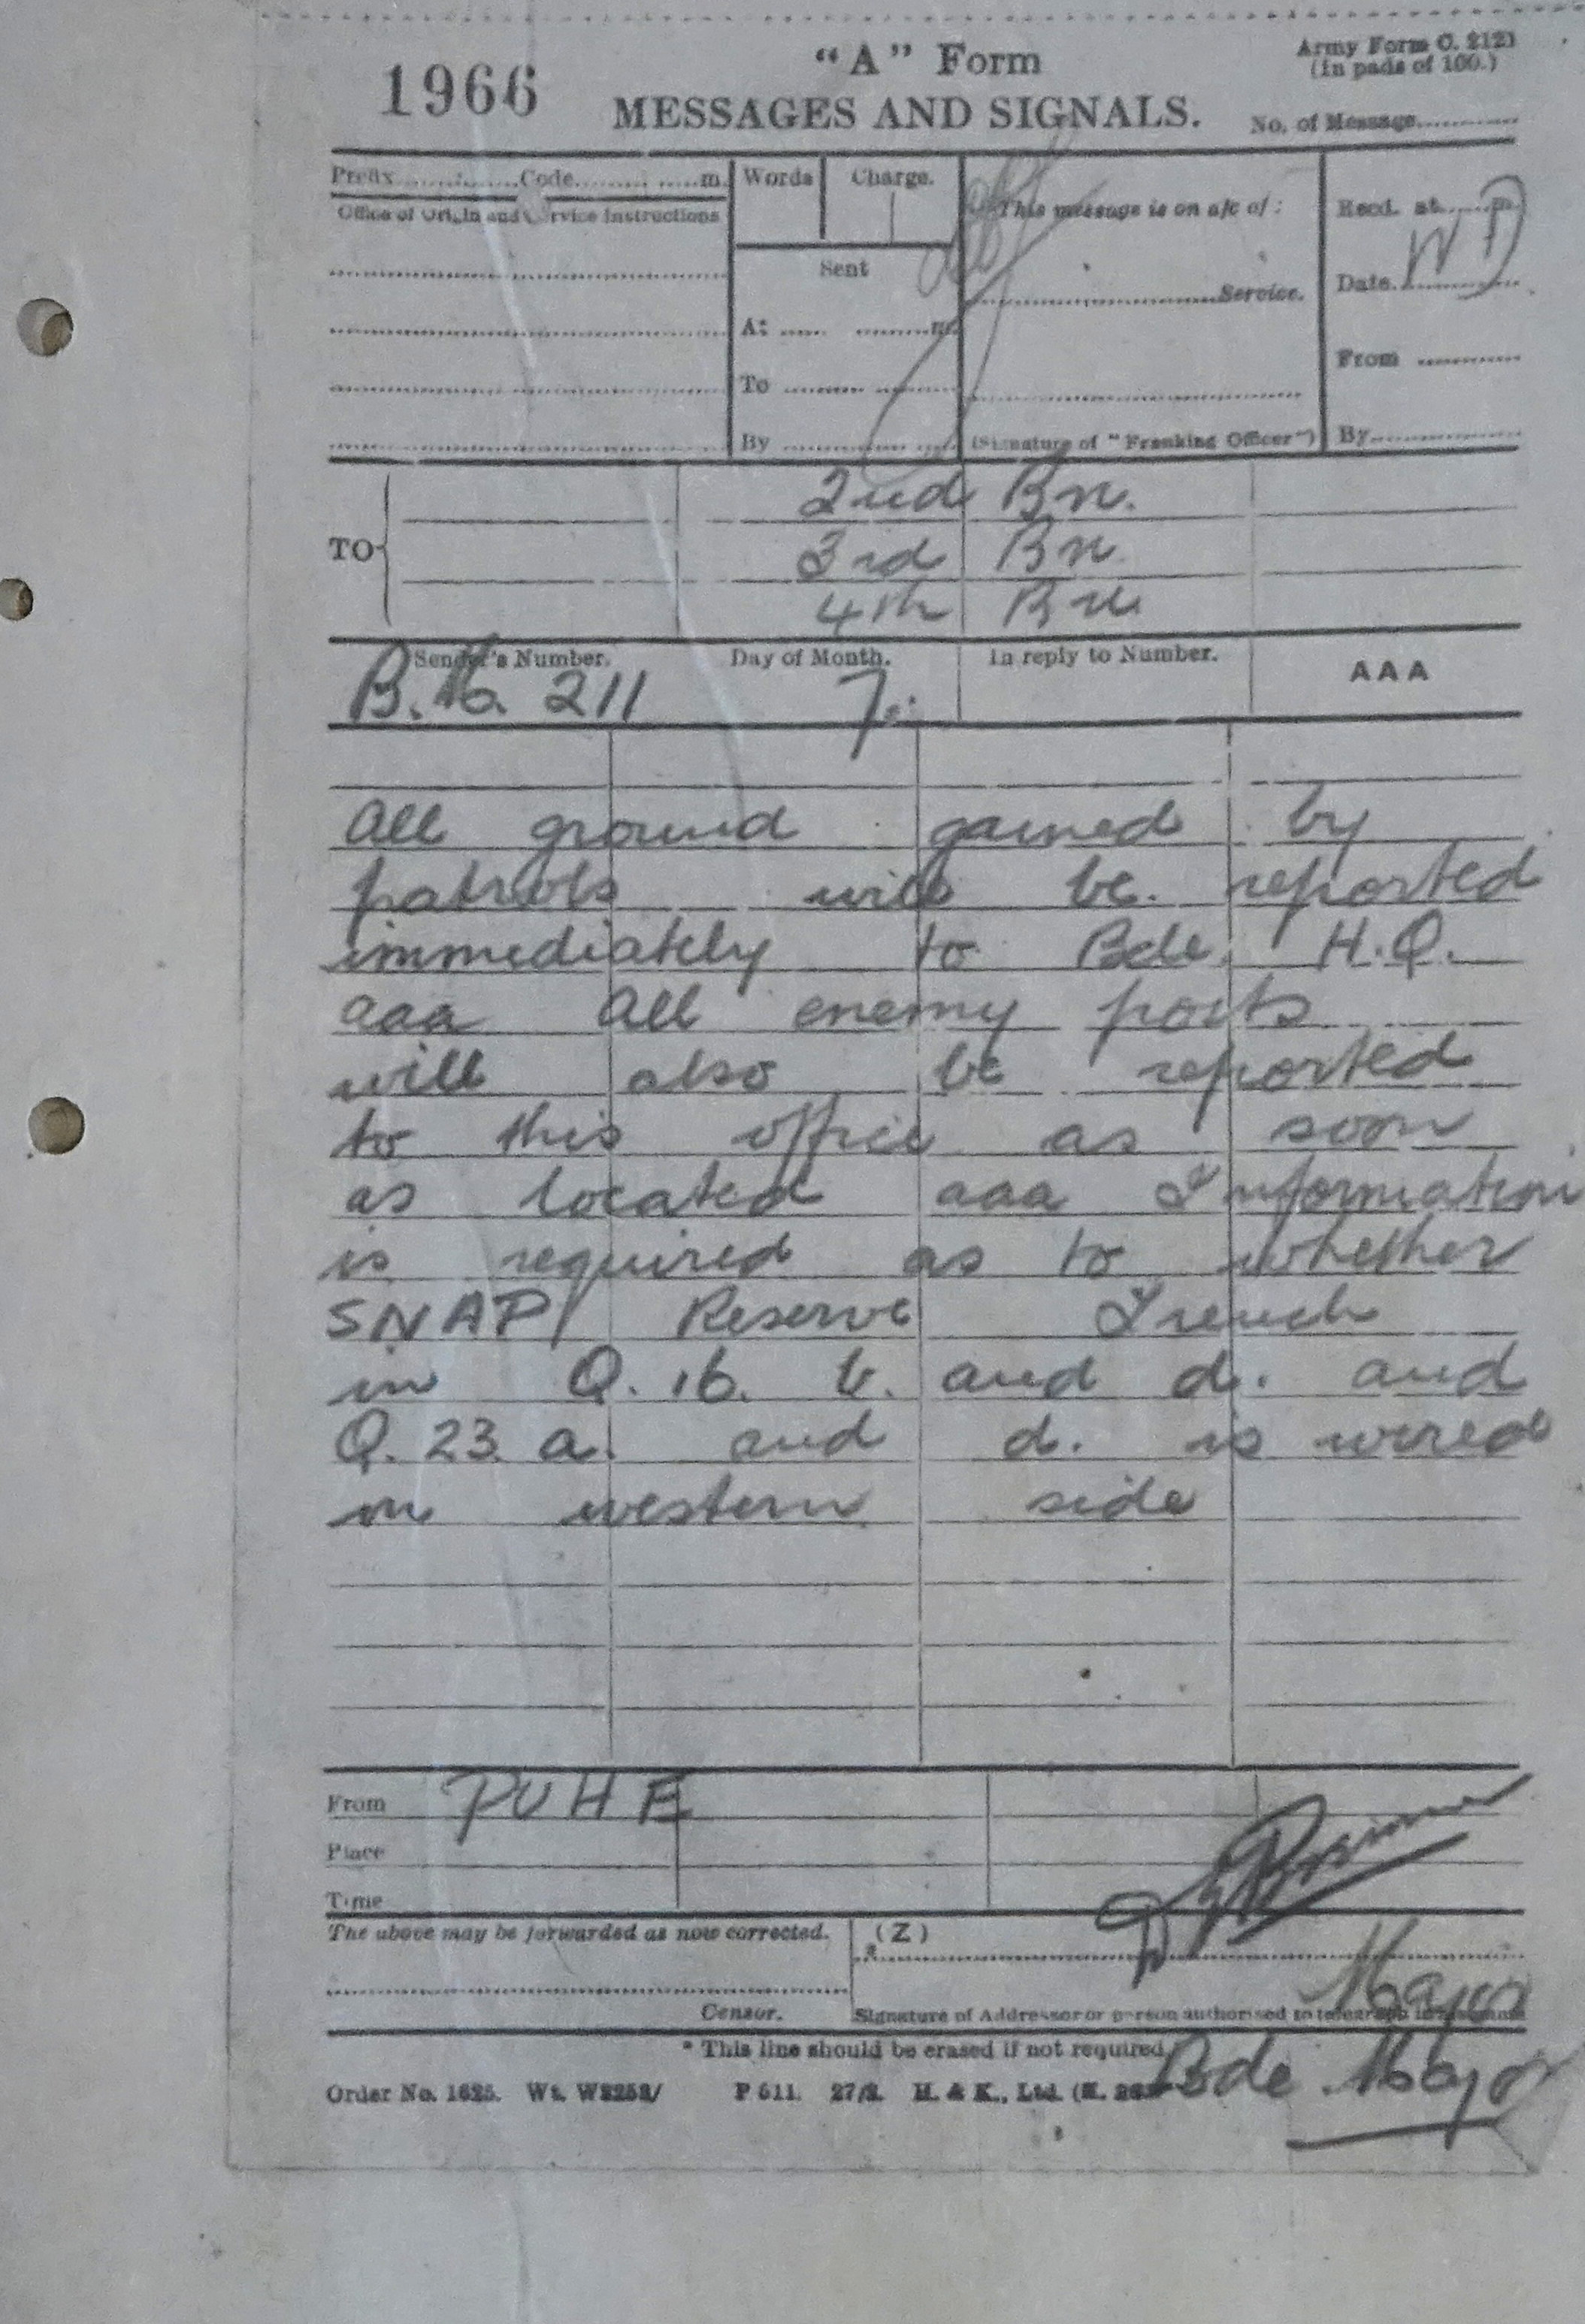 1966
"A" Form
Army Form C. 2121
(In pads of 100.)
MESSAGES AND SIGNALS.
No. of Message..........
Prefix..........Code..........m.
Words
Charge.
Office of Origin and Service Instructions
This message is on a/c of :
Recd. at......m.
Sent
W D
Date..........
..........Service.
At ..........m.
From ..........
To ..........
By ..........
(Signature of "Franking Officer")
By..........
2nd Bn.
TO
3rd Bn.
4th Bn
Sender's Number.
Day of Month.
In reply to Number.
AAA
B.M. 211
7.
All ground gained by
patrols will be reported
immediately to Bde. H.Q.
aaa All enemy posts
will also be reported
to this office as soon
as located aaa Information
is required as to whether
SNAP Reserve Trench
in Q. 16. b. and d. and
Q. 23. a. and d. is wired
on western side
From PUHE
Place
Time
The above may be forwarded as now corrected.
(Z)
Major
Censor.
Signature of Addressor or person authorised to telegraph in his name
* This line should be erased if not required.
Bde Major
Order No. 1625. Wt. W3253/ P 511. 27/2. H. & K., Ltd.